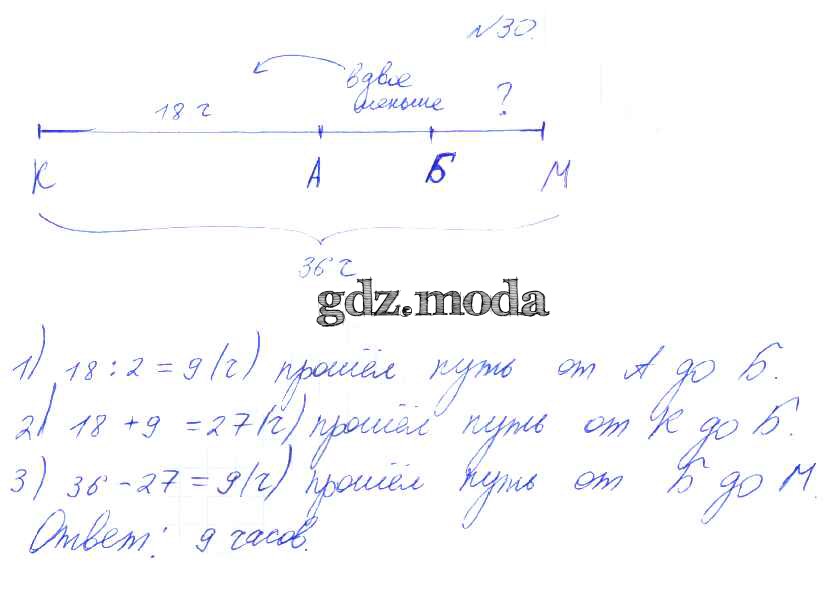 №30.
вдвое
меньше
18 ч
?
К А Б М
36 ч
gdz.moda
1) 18 : 2 = 9 (ч) прошёл путь от А до Б.
2) 18 + 9 = 27 (ч) прошёл путь от К до Б.
3) 36 - 27 = 9 (ч) прошёл путь от Б до М.
Ответ: 9 часов.